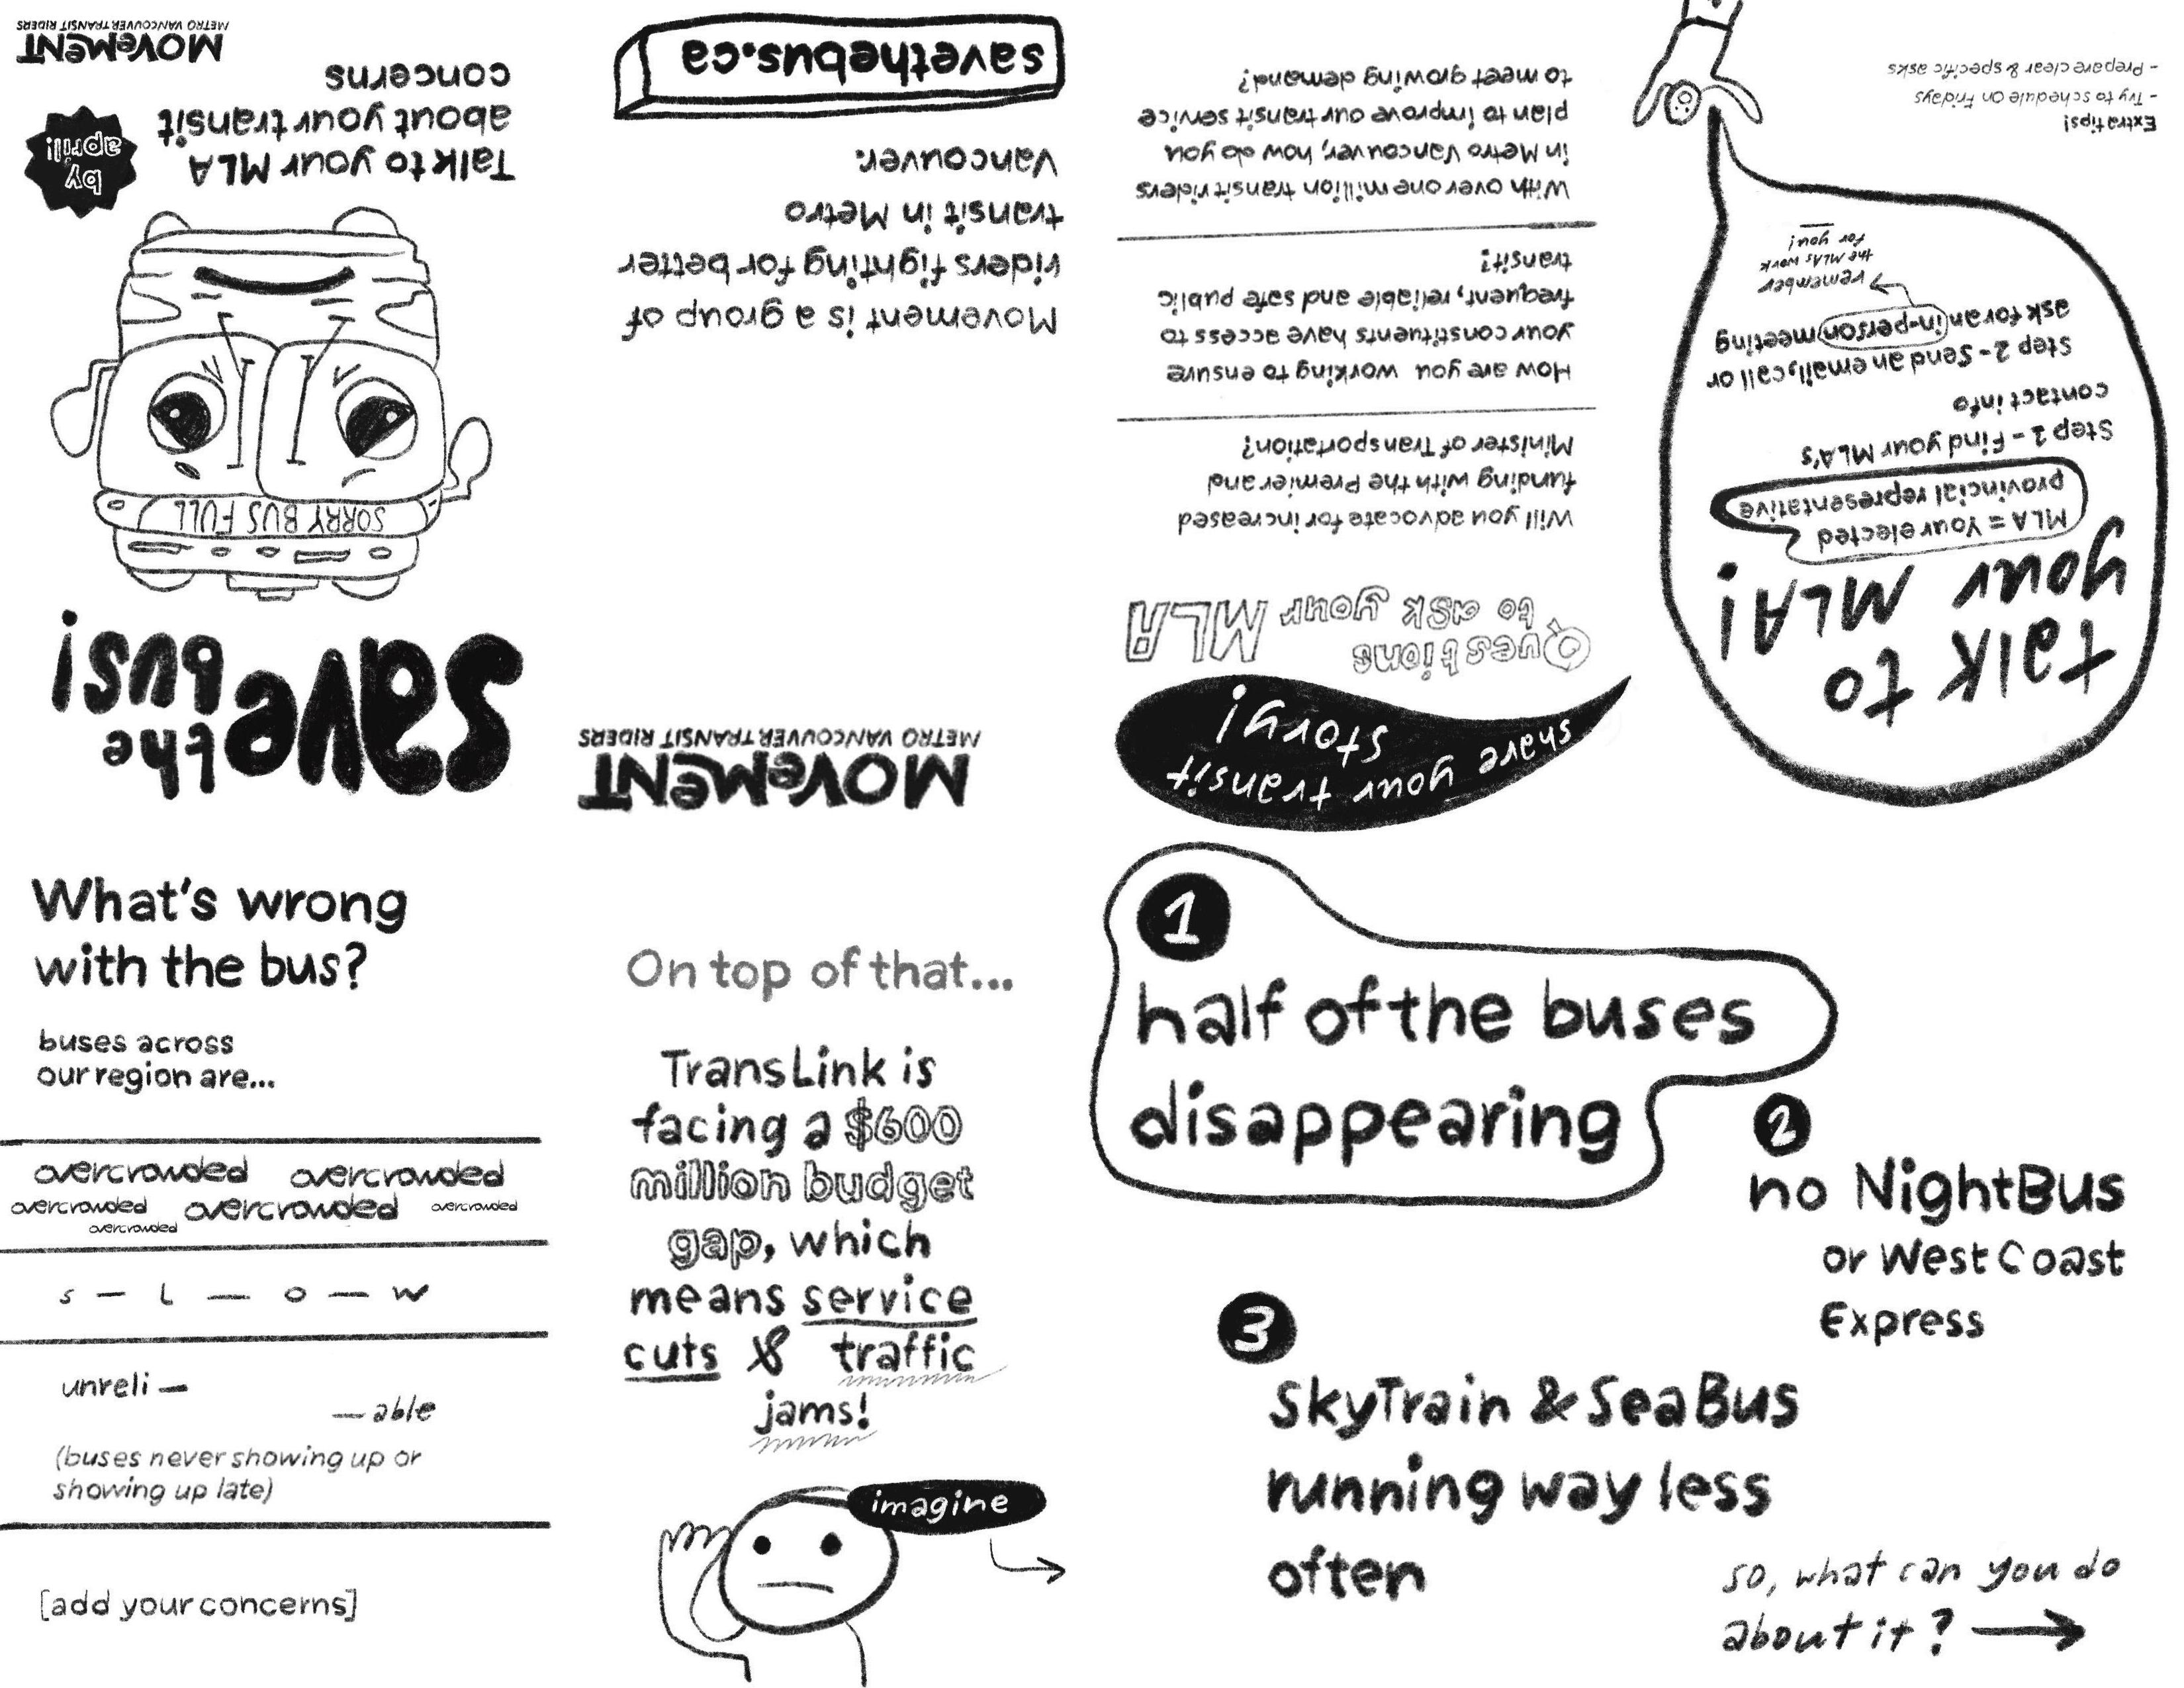 save the
bus!
SORRY BUS FULL
Talk to your MLA
about your transit
concerns
by
april!
MOVEMENT
METRO VANCOUVER TRANSIT RIDERS
What's wrong
with the bus?
buses across
our region are...
overcrowded overcrowded
overcrowded overcrowded overcrowded
overcrowded
s — l — o — w
unreli —
— able
(buses never showing up or
showing up late)
[add your concerns]
On top of that...
TransLink is
facing a $600
million budget
gap, which
means service
cuts & traffic
jams!
imagine
1
half of the buses
disappearing
2
no NightBus
or West Coast
Express
3
SkyTrain & SeaBus
running way less
often
so, what can you do
about it?
talk to
your MLA!
MLA = Your elected
provincial representative
Step 1 - Find your MLA's
contact info
Step 2 - Send an email, call or
ask for an in-person meeting
remember
the MLAs work
for you!
Extra tips!
- Try to schedule on Fridays
- Prepare clear & specific asks
share your transit
story!
Questions
to ask your MLA
Will you advocate for increased
funding with the Premier and
Minister of Transportation?
How are you working to ensure
your constituents have access to
frequent, reliable and safe public
transit?
With over one million transit riders
in Metro Vancouver, how do you
plan to improve our transit service
to meet growing demand?
MOVEMENT
METRO VANCOUVER TRANSIT RIDERS
Movement is a group of
riders fighting for better
transit in Metro
Vancouver.
savethebus.ca